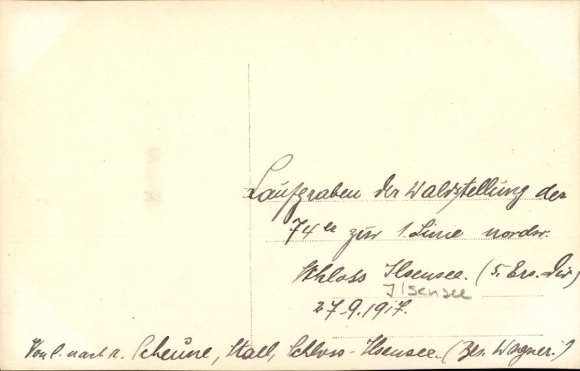 Laufgraben der Waldstellung der
74er zur 1. Linie nordw.
Schloss Ilsensee. (5. Ers. Div)
Ilsensee
27.9.1917.
Von l. nach r. Scheune, Stall, Schloss-Ilsensee. (Bes. Wagner.)